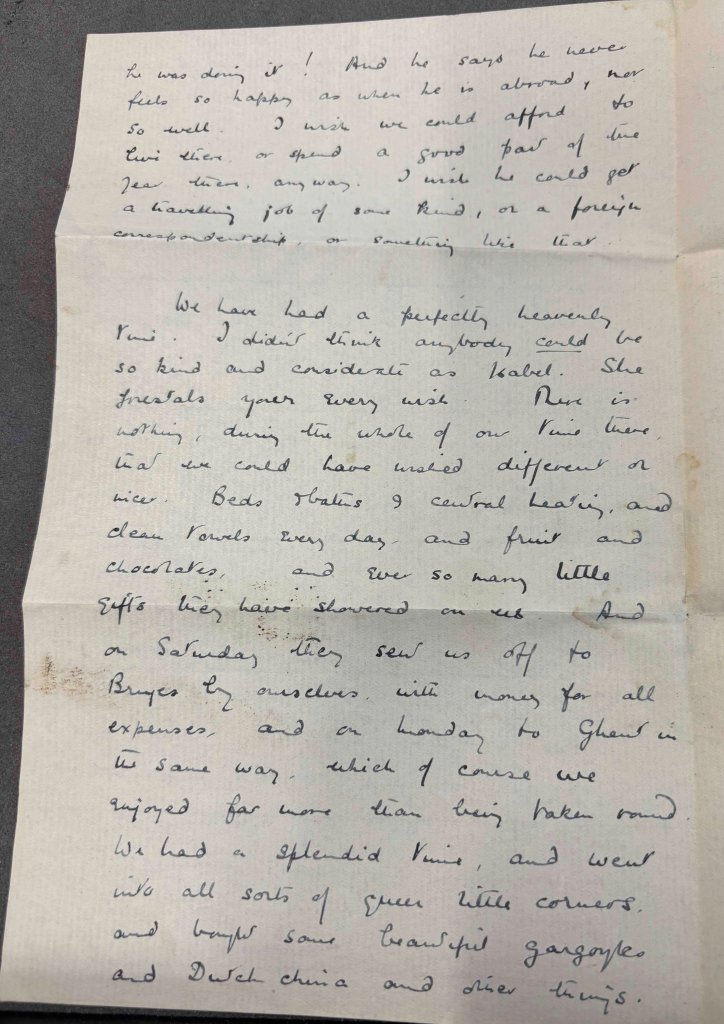 he was doing it! And he says he never
feels so happy as when he is abroad, nor
so well. I wish we could afford to
live there, or spend a good part of the
year there, anyway. I wish he could get
a travelling job of some kind, or a foreign
correspondentship, or something like that.
We have had a perfectly heavenly
time. I didn't think anybody could be
so kind and considerate as Isabel. She
forestals your every wish. There is
nothing, during the whole of our time there,
that we could have wished different or
nicer. Beds & baths & central heating, and
clean towels every day, and fruit and
chocolates, and ever so many little
gifts they have showered on us. And
on Saturday they sent us off to
Bruges by ourselves, with money for all
expenses, and on Monday to Ghent in
the same way, which of course we
enjoyed far more than being taken round.
We had a splendid time, and went
into all sorts of queer little corners,
and bought some beautiful gargoyles
and Dutch china and other things.